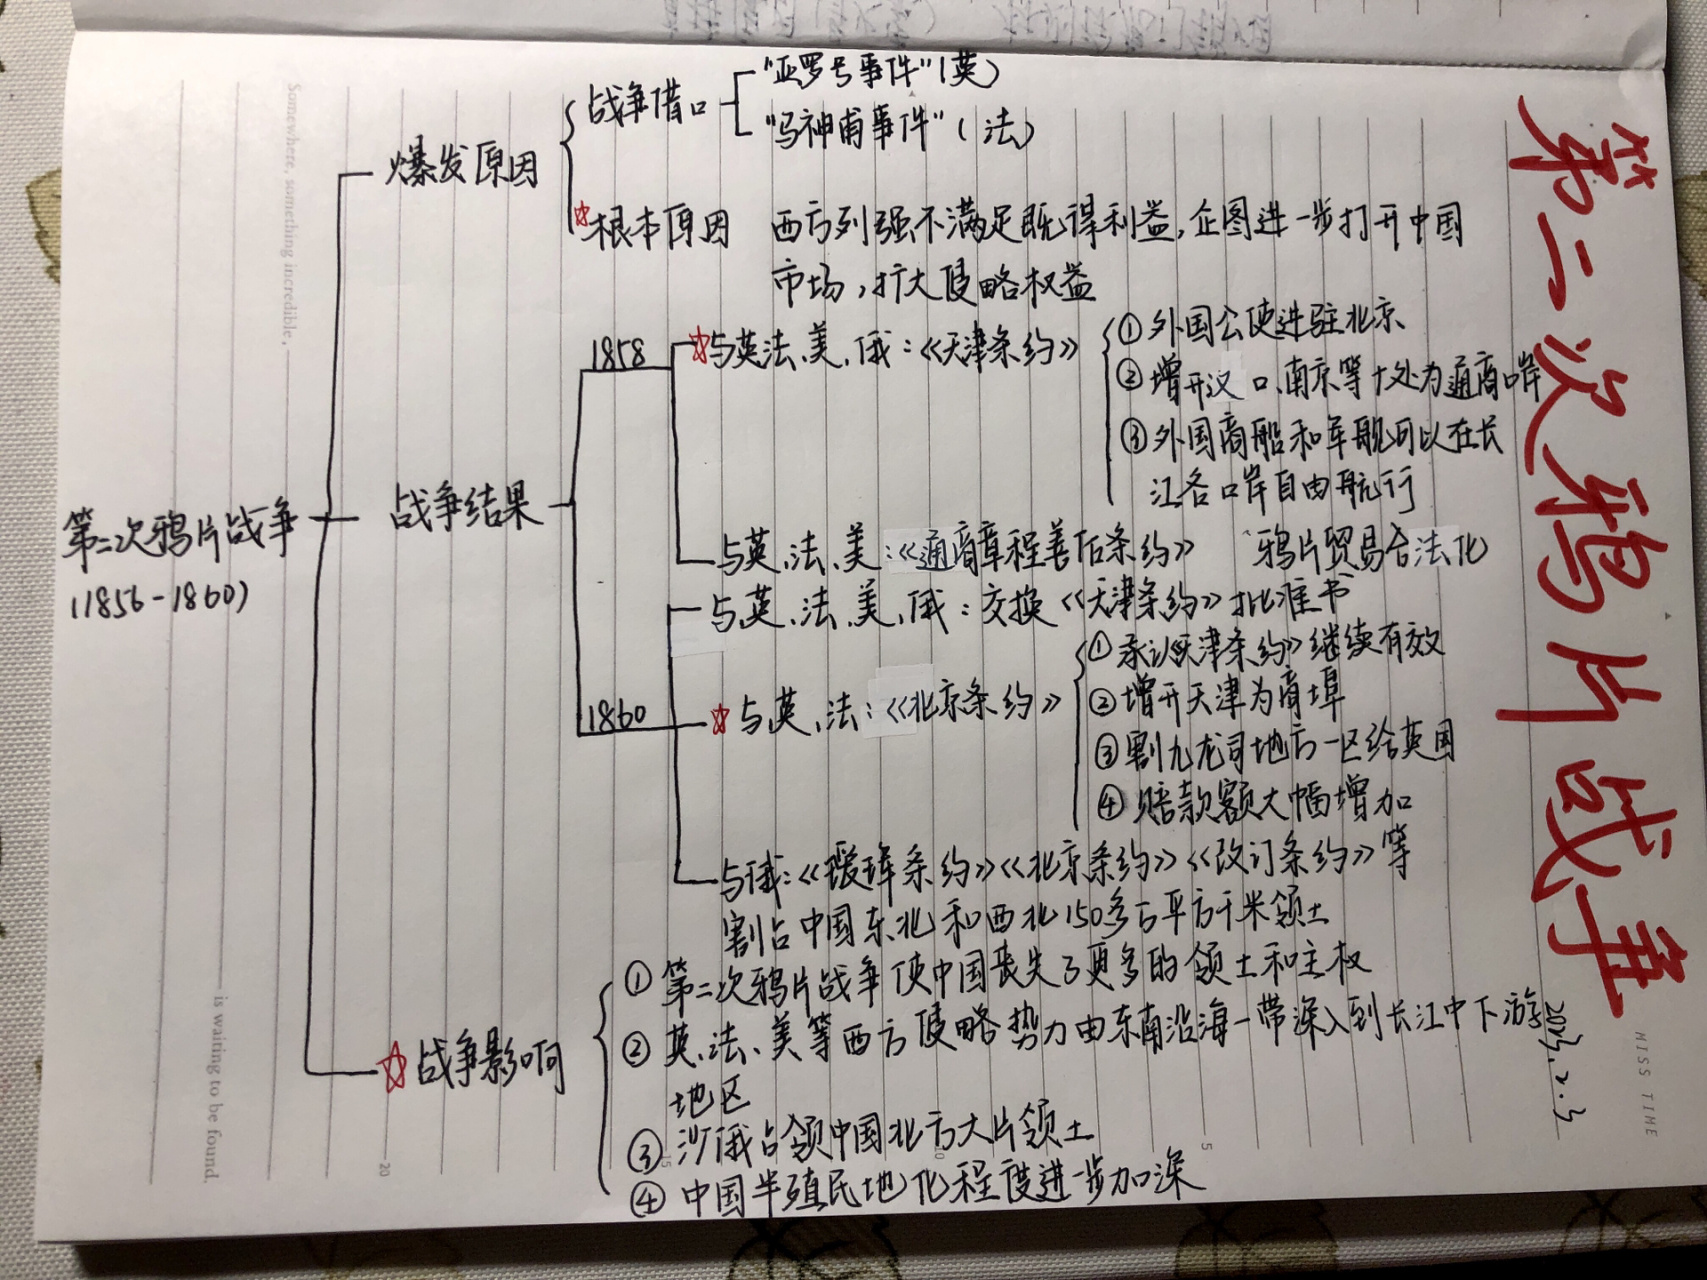 第二次鸦片战争
第二次鸦片战争
(1856-1860)
爆发原因
战争借口
"亚罗号事件"(英)
"马神甫事件"(法)
根本原因 西方列强不满足既得利益,企图进一步打开中国
市场,扩大侵略权益
战争结果
1858
与英法、美、俄:《天津条约》
①外国公使进驻北京
②增开汉口、南京等十处为通商口岸
③外国商船和军舰可以在长
江各口岸自由航行
与英、法、美:《通商章程善后条约》 鸦片贸易合法化
1860
与英、法、美、俄:交换《天津条约》批准书
与英、法:《北京条约》
①承认《天津条约》继续有效
②增开天津为商埠
③割九龙司地方一区给英国
④赔款额大幅增加
与俄:《瑷珲条约》《北京条约》《改订条约》等
割占中国东北和西北150多万平方千米领土
战争影响
①第二次鸦片战争使中国丧失了更多的领土和主权
②英、法、美等西方侵略势力由东南沿海一带深入到长江中下游
地区
③沙俄占领中国北方大片领土
④中国半殖民地化程度进一步加深
2023.2.3
MISS TIME
Somewhere, something incredible,
is waiting to be found.
5
10
15
20